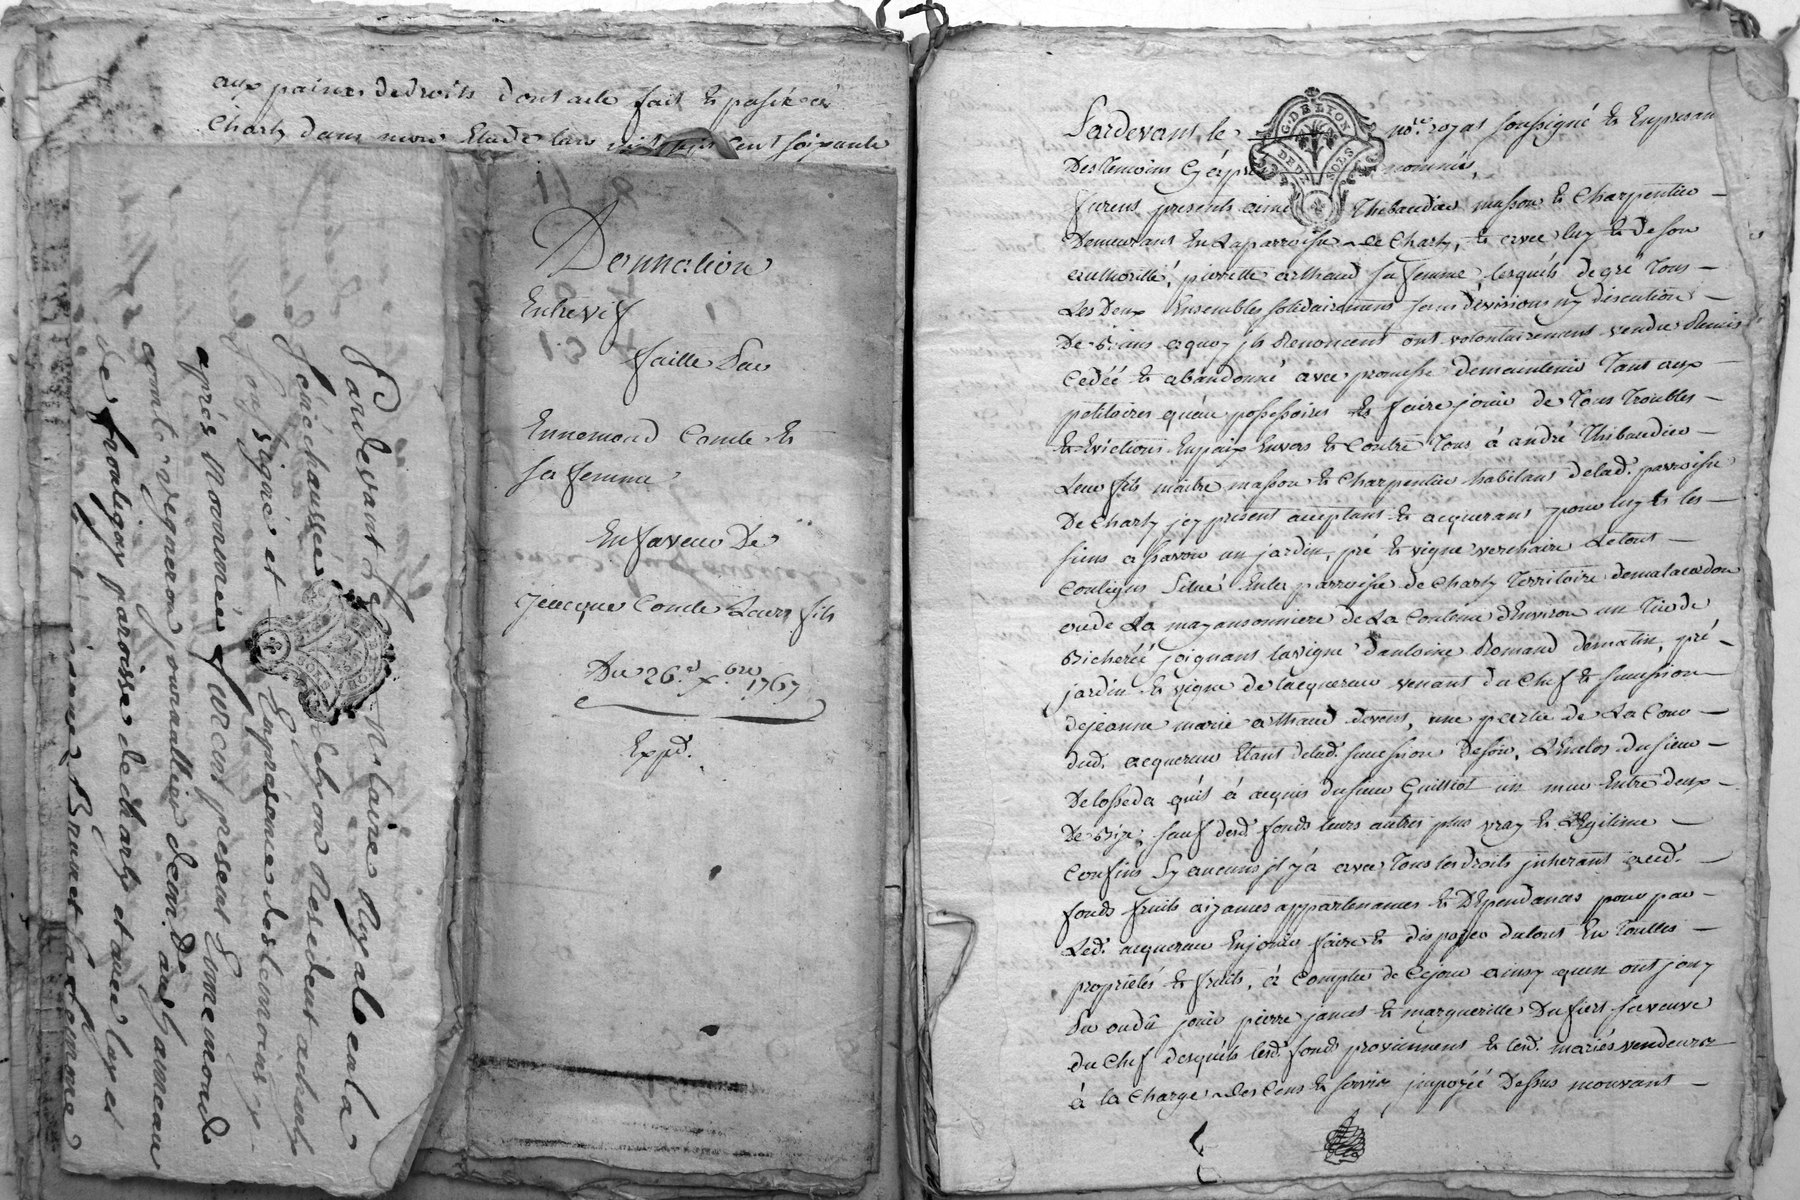 aux paines de droits dont acte fait & passé à
Charly dans mon Etude l'an mil sept cent soixante
Donnation
Entrevif
faitte Par
Ennemond Comte Et
sa femme
En faveur De
Jacque Comte Leurs fils
Du 26.e xbre 1767
Expd.
Pardevant Le Notaire Royal en la
Sénéchaussée de Lyon Résident a charly
sousigné et En présence des temoins cy
après Nommées furent présent Ennemond
comte vigneron journallier deur. au hameau
de frontigny paroisse de charly et avec luy et
Brunet sa femme
Pardevant le nore. royal soussigné & En presance
Des temoins Cy apres nommés,
furent presents aimé Thibaudier masson & Charpentier
Demeurant En La parroisse de Charly, & avec luy & De son
authorité, pierrette arthaud sa femme, lesquels de gré tous
Les Deux Ensembles solidairement sans division ny discution
De Biens a quoy jls Renoncent ont volontairement vendu Remis
Cédé & abandonné avec promesse de maintenir tant aux
petitoires qu'au possessoires & faire jouir de tous troubles
& Evictions En paix Envers & Contre tous à andré Thibaudier
Leur fils maitre masson & Charpentier habitant de lad. parroisse
De Charly jcy present acceptant & acquerant pour luy & les
siens a savoir un jardin, pré & vigne verchaire Le tout
Contigus Situé En la parroisse de Charly Territoire de
ou de La mayansonniere de La Contenue d'Environ un
Bicherée joignant la vigne d'antoine Romand de matin, pré
jardin & vigne de l'acquereur venant du Chef & succession
de jeanne marie arthaud de vent, une partie de La Cour
dud. acquereur Etant de lad. succession de soir, L'Enclos du sieur
Delosseda qu'il à acquis du sieur Guilliot un mur Entre deux
De Bize; sauf desd. fonds leurs autres plus vray & Légitime
Confins sy aucuns jl y à avec tous les droits jnherant aud.
fonds fruits aizances appartenances & Dépendances pour par
Led. acquereur En jouir faire & disposer du tout En touttes
propriétés & fruits, à Compter de Ce jour ainsy qu'en ont jouy
Pu ou dû jouir pierre james & margueritte Dufier sa veuve
du Chef desquels lesd. fonds proviennent & lesd. mariés vendeurs
à la Charge des Cens & servis jmpozéé Dessus mouvant